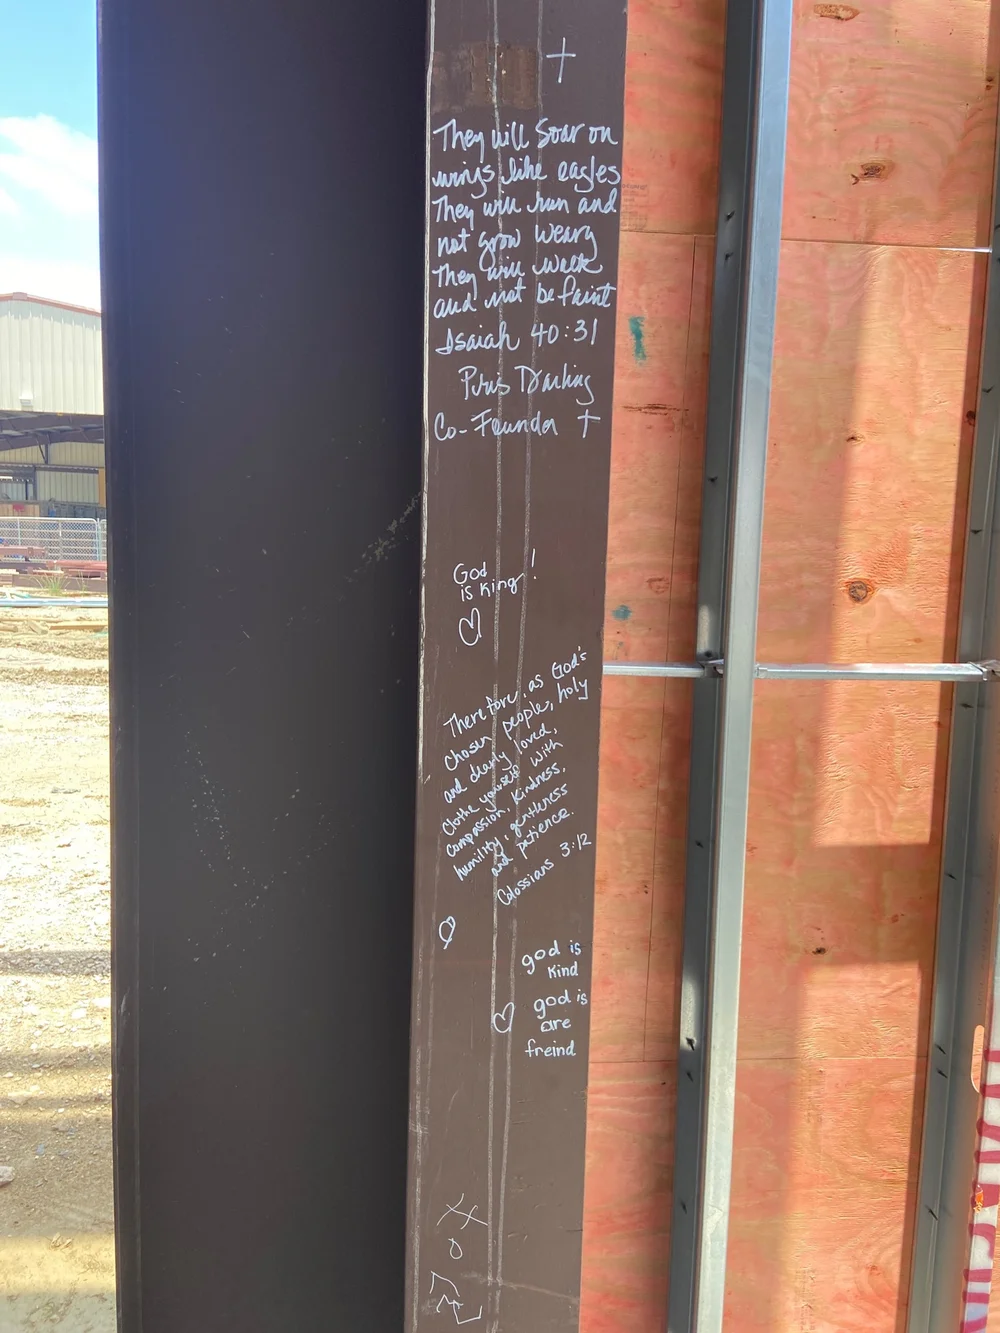 They will Soar on
wings like eagles
They will run and
not grow weary
They will walk
and not be faint
Isaiah 40:31
Darling
Co-Founder
God
is King!
Therefore, as God's
chosen people, holy
and dearly loved,
clothe yourself with
compassion, kindness,
humility, gentleness
and patience.
Colossians 3:12
god is
kind
god is
are
freind